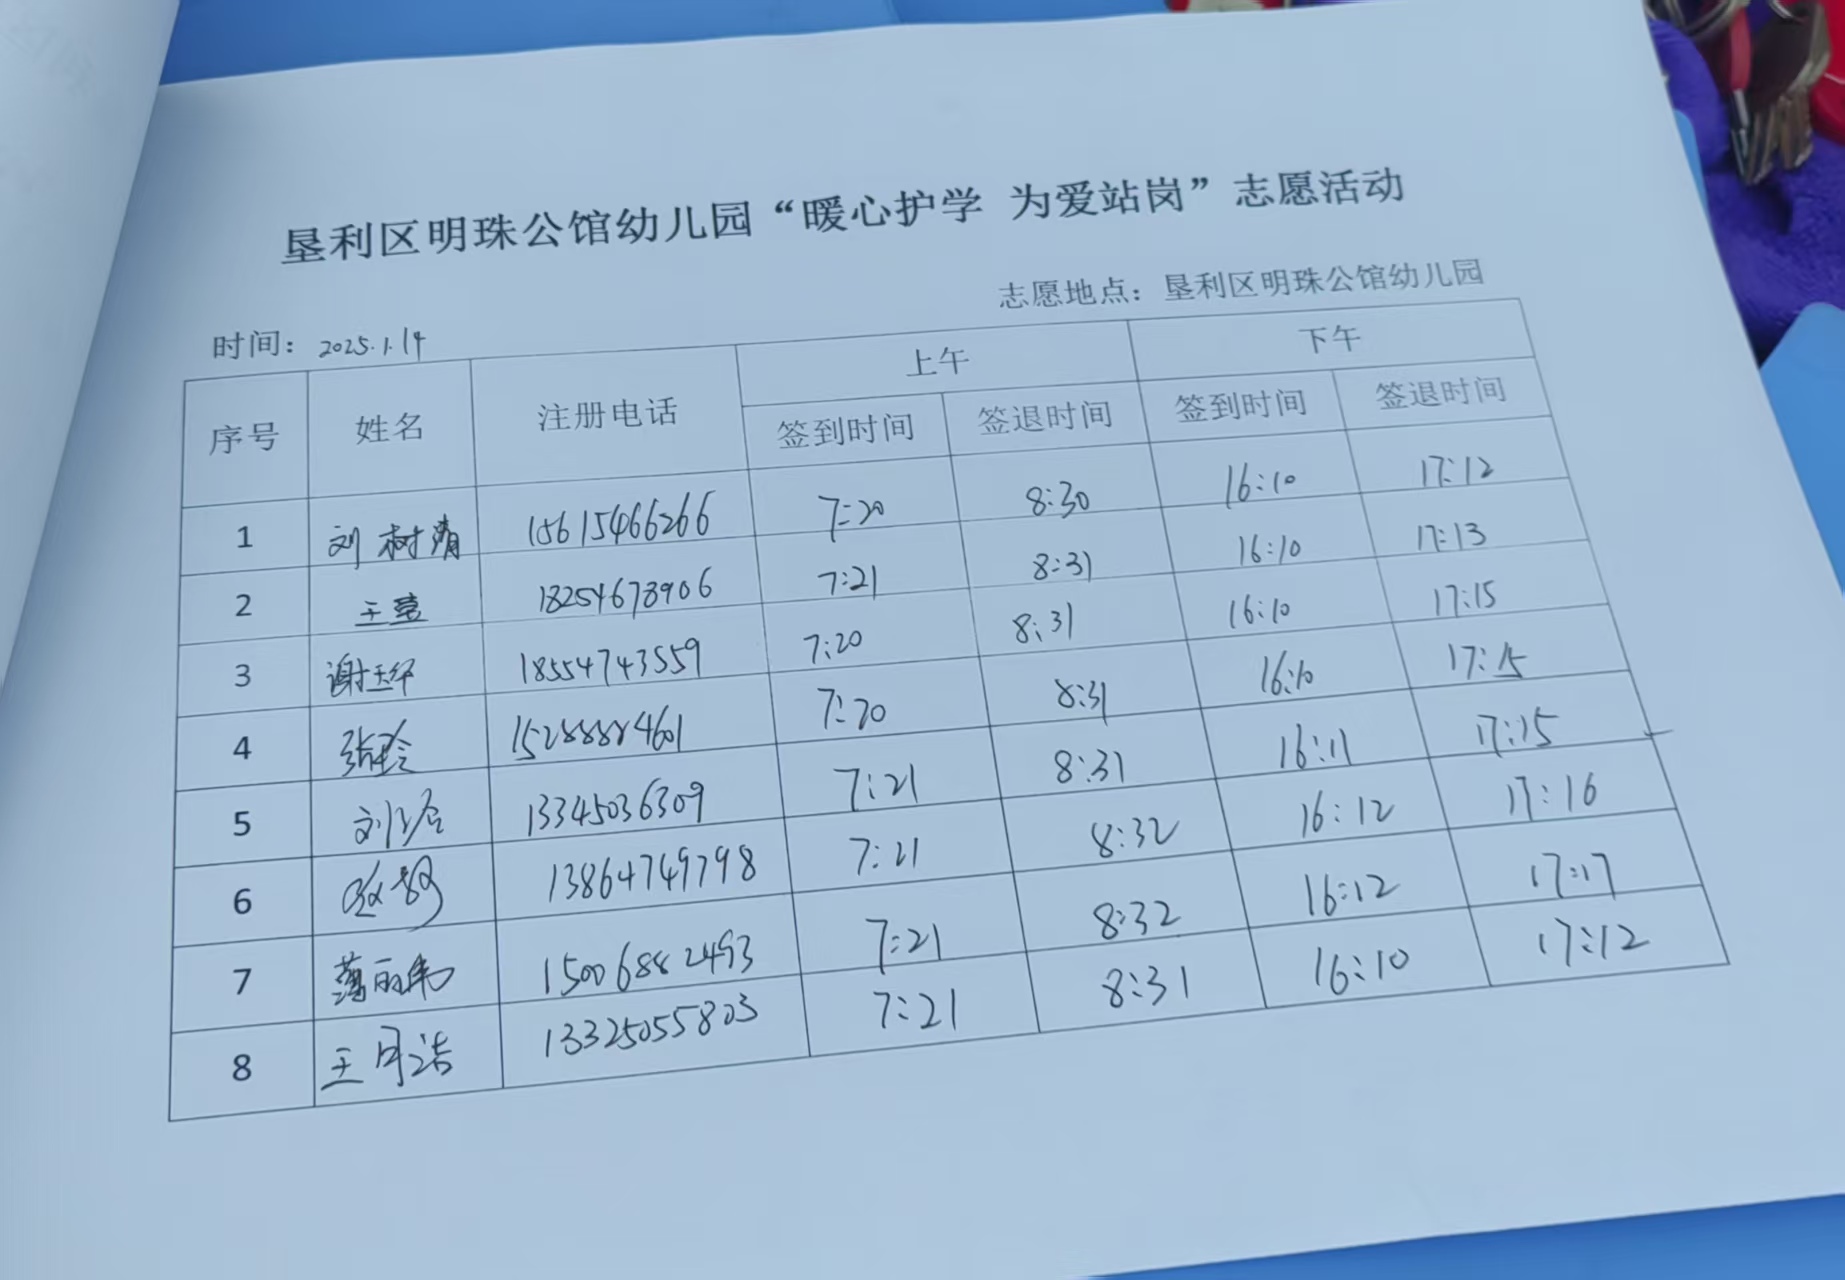 垦利区明珠公馆幼儿园“暖心护学 为爱站岗”志愿活动
时间：2025.1.14 志愿地点：垦利区明珠公馆幼儿园
序号 姓名 注册电话 上午 下午
签到时间 签退时间 签到时间 签退时间
1 刘树清 15615466266 7:20 8:30 16:10 17:12
2 王 18254678906 7:21 8:31 16:10 17:13
3 谢 18554743559 7:20 8:31 16:10 17:15
4 张玲 15288884601 7:20 8:31 16:10 17:15
5 刘 13345036309 7:21 8:31 16:11 17:15
6 13864749798 7:21 8:32 16:12 17:16
7 薄丽伟 15006882493 7:21 8:32 16:12 17:17
8 王 13325055803 7:21 8:31 16:10 17:12